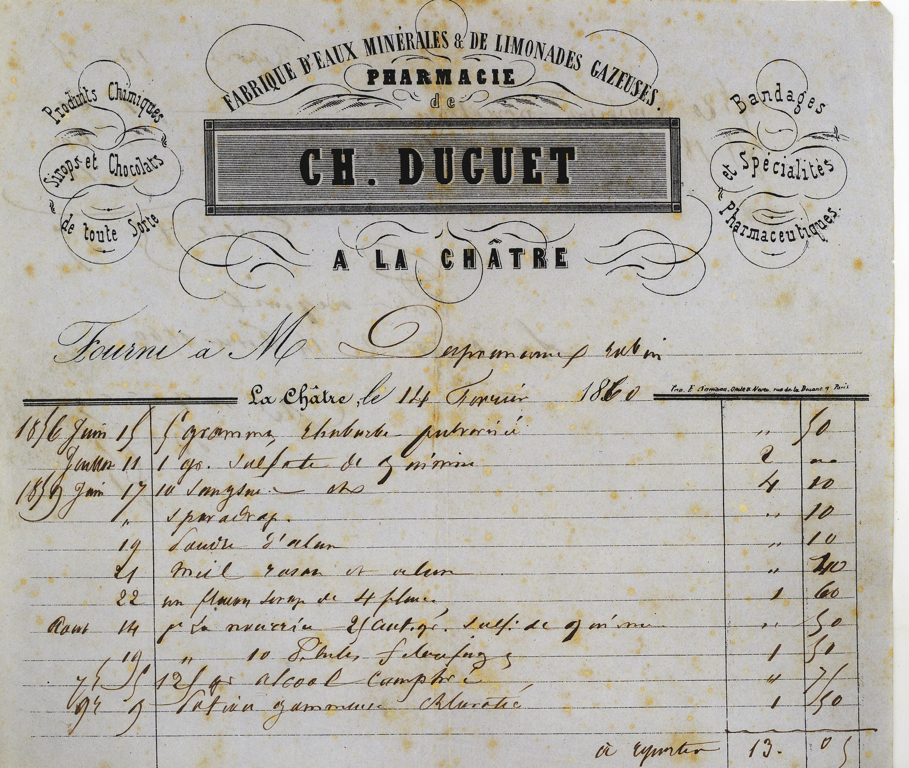 FABRIQUE D'EAUX MINÉRALES & DE LIMONADES GAZEUSES.
PHARMACIE
de
CH. DUGUET
A LA CHÂTRE
Produits Chimiques
Sirops et Chocolats
de toute Sorte
Bandages
et Spécialités
Pharmaceutiques.
Fourni à M
La Châtre, le 14 Février 1860
1856 Juin 15 5 grammes rhubarbe pulvérisé " 50
Juillet 11 1 gr. sulfate de quinine 2 "
1859 Juin 17 10 sangsues 4 10
" sparadrap. " 10
19 Poudre d'alun " 10
21 Miel rosat et alun " 40
22 un flacon sirop de 1 60
Aout 14 25 sulf. de quinine " 50
19 " 10 Pilules 1 50
125 gr alcool camphré " 75
Potion gommeuse 1 50
à reporter 13. 05